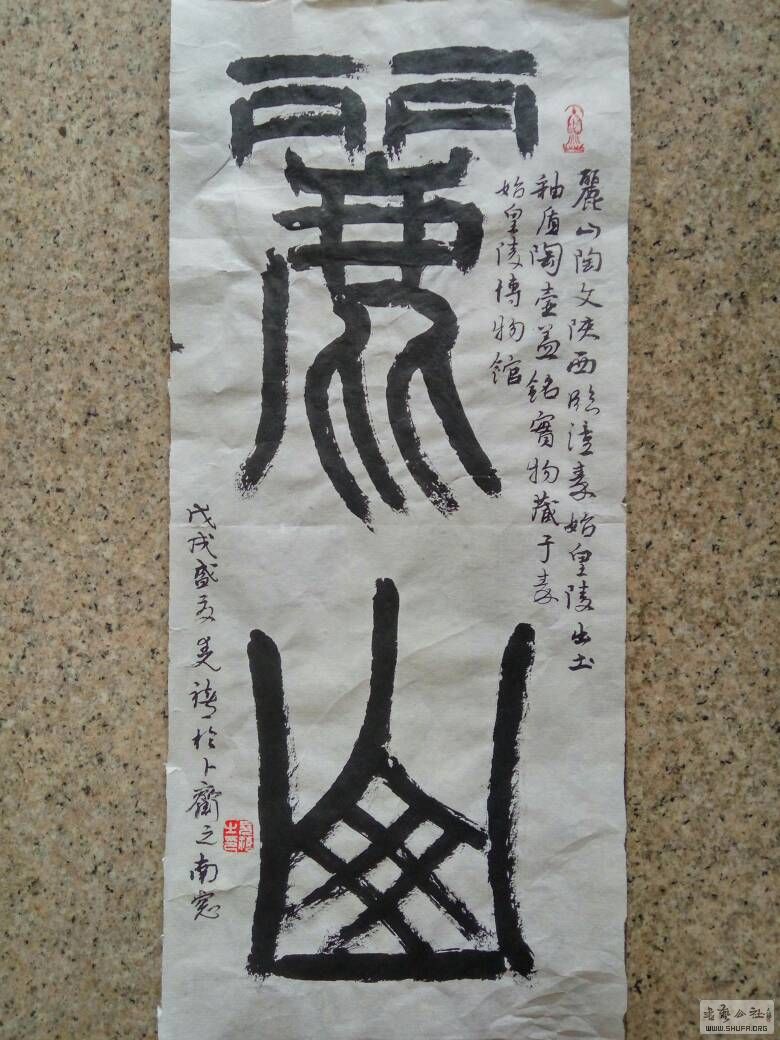 麗山
麗山陶文陝西臨潼秦始皇陵出土
釉质陶壺盖銘實物藏于秦
始皇陵博物館
戊戌盛夏於卜齋之南窓
書藝公社
WWW.SHUFA.ORG